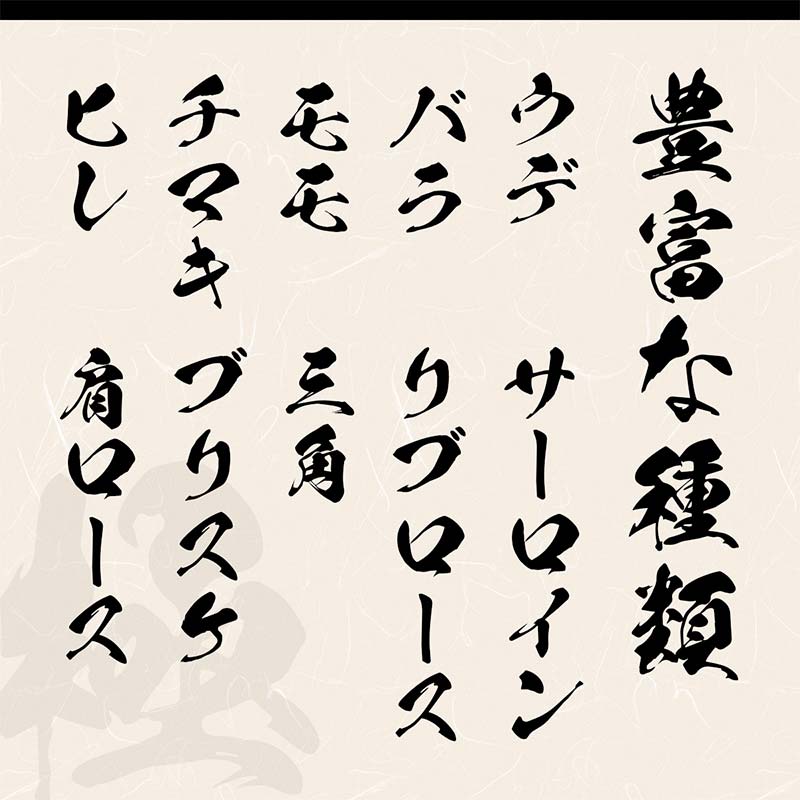 豊富な種類
ウデ
サーロイン
バラ
リブロース
モモ
三角
チマキ
ブリスケ
ヒレ
肩ロース
極